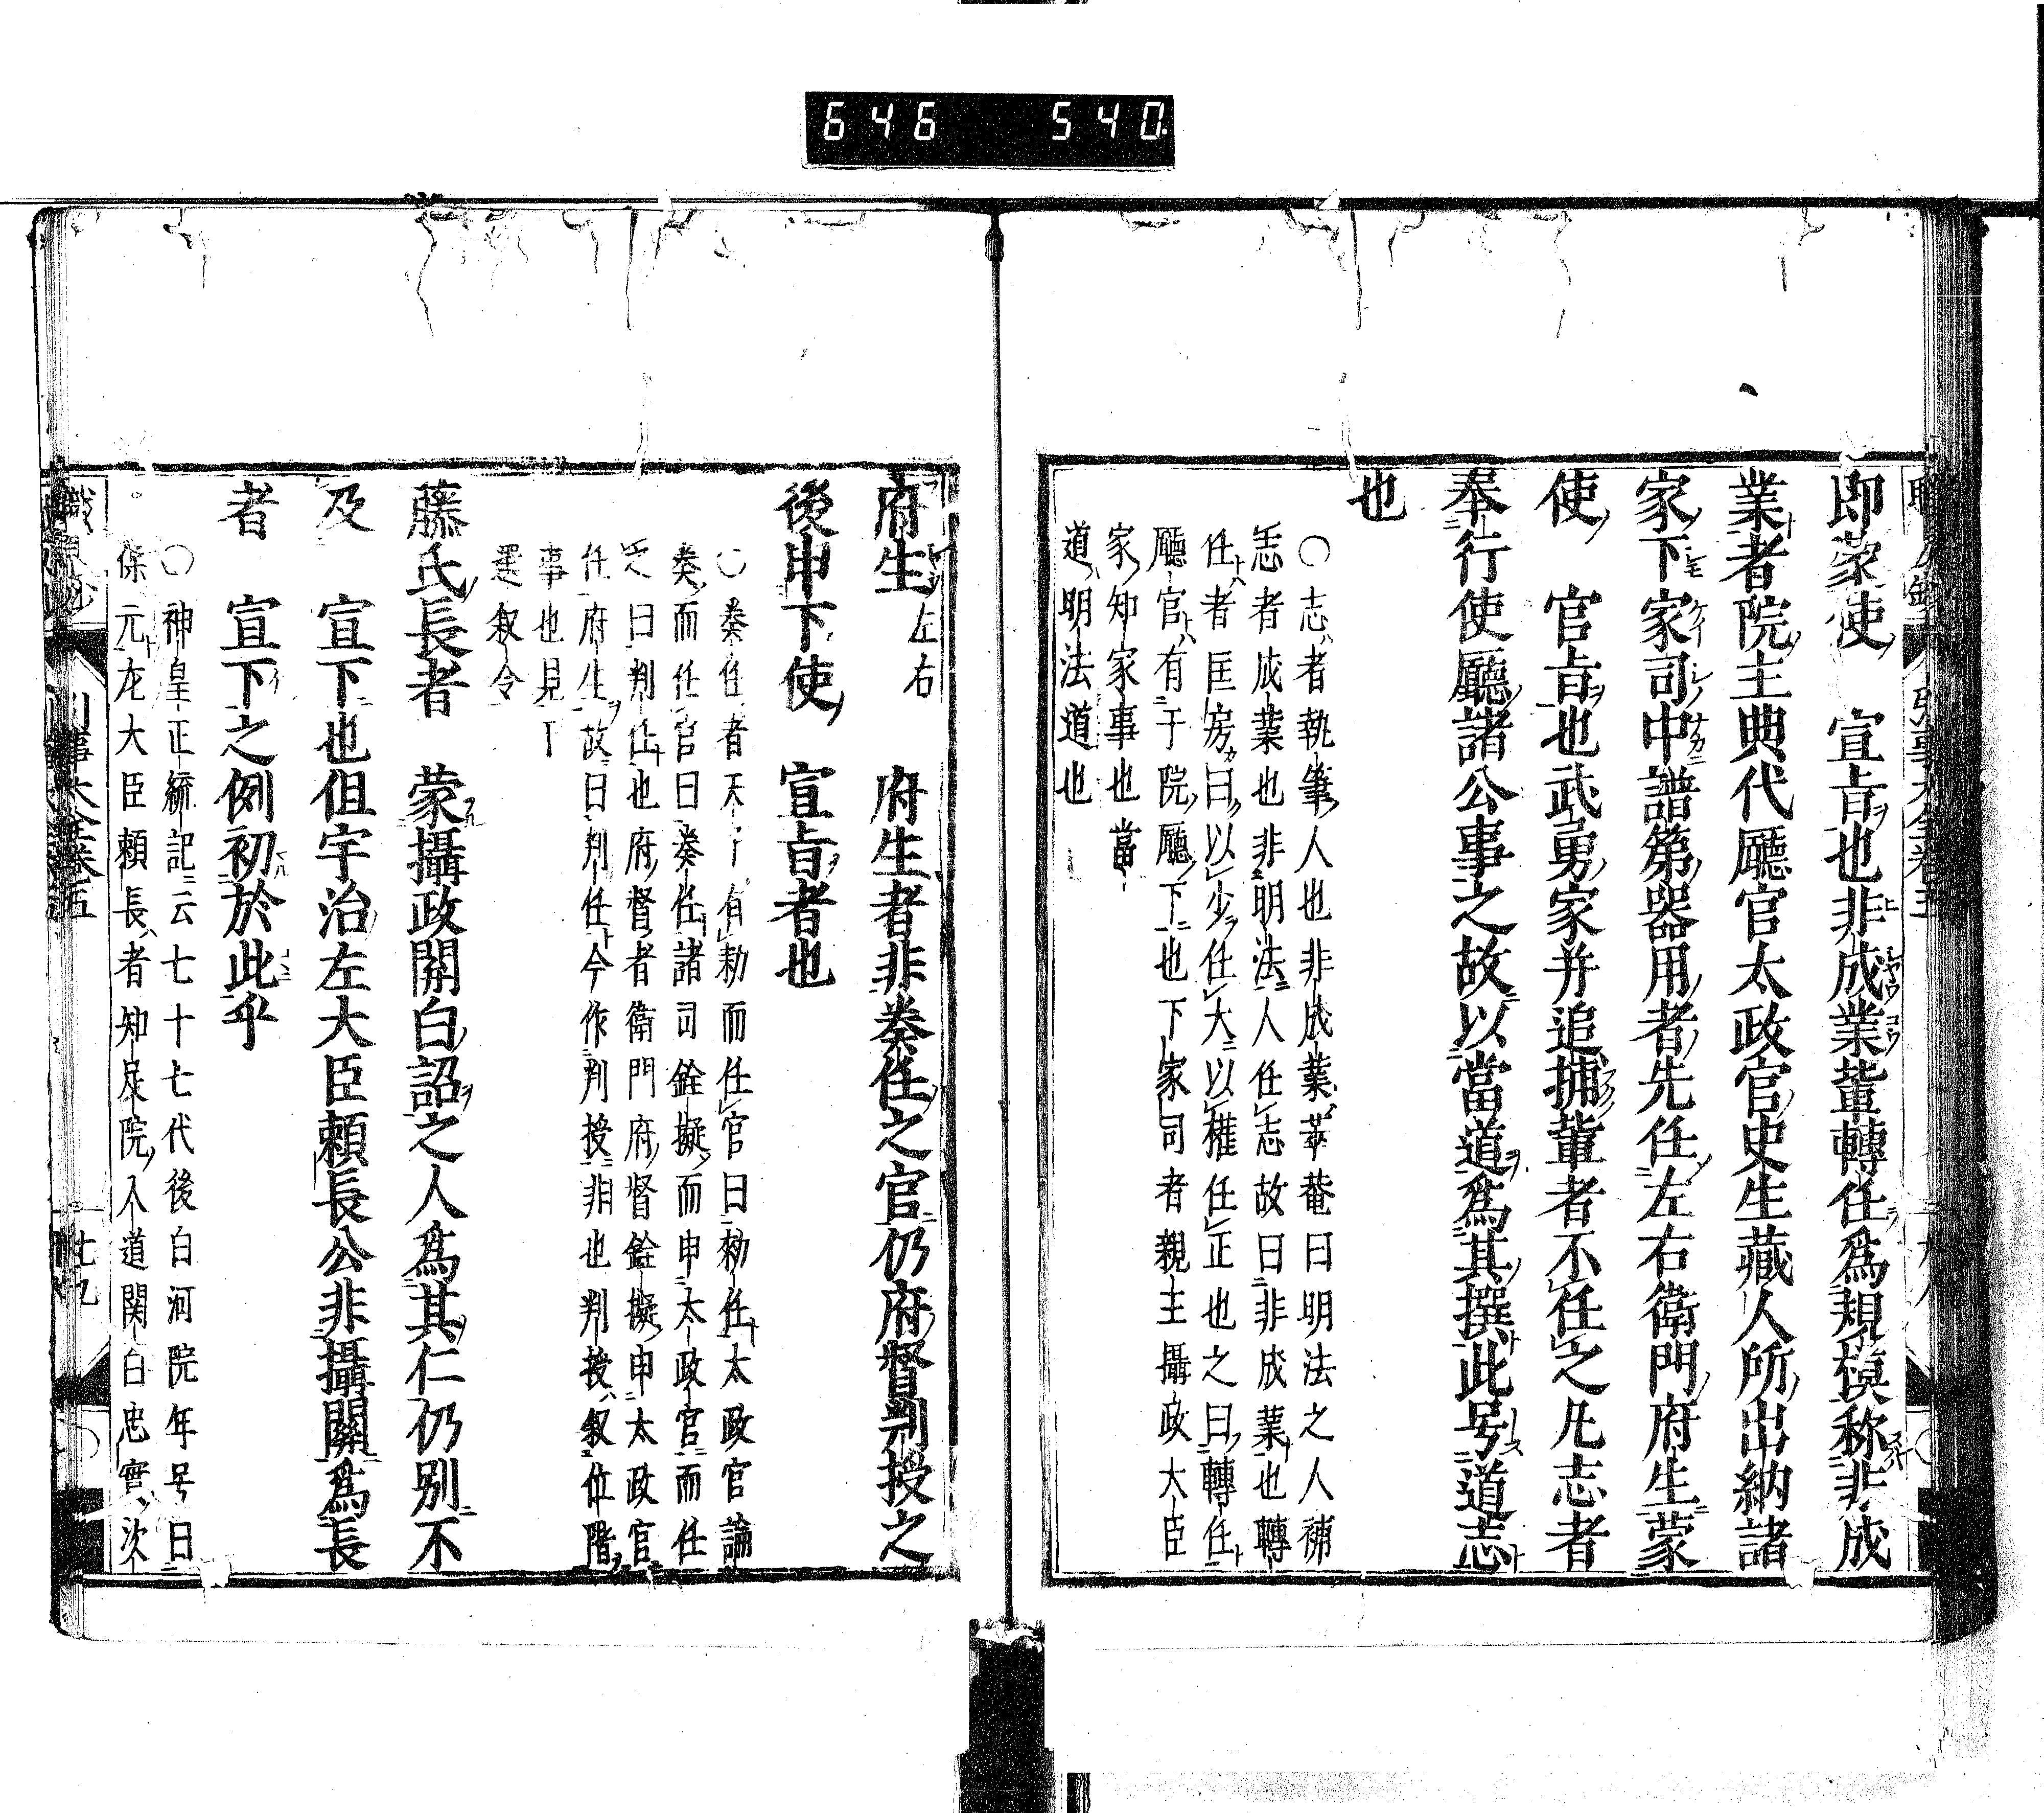 646 540
即蒙使 宣旨也非成業輩轉任爲規模称非成
業者院主典代廳官太政官史生藏人所出納諸
家下家司中譜第器用者先任左右衛門府生蒙
使 官旨也武勇家并追捕輩者不任之凡志者
奉行使廳諸公事之故以當道爲其撰此号道志
也
〇志者執筆人也非成業莘菴曰明法之人補
志者成業也非明法人任志故曰非成業也轉
任者匡房曰以少任大以權任正也之曰轉任
廳官有于院廳下也下家司者親王攝政大臣
家知家事也當
道明法道也
府生左右 府生者非奏任之官仍府督判授之
後申下使 宣旨者也
〇奏任者天子有勅而任官曰勅任太政官論
奏而任官曰奏任諸司銓擬而申太政官而任
之曰判任也府督者衛門府督銓擬申太政官
任府生故曰判任今作判授非也判授叙位階
事也見
選叙令
藤氏長者 蒙攝政關白詔之人爲其仁仍別不
及 宣下也但宇治左大臣頼長公非攝關爲長
者 宣下之例初於此乎
〇神皇正統記云七十七代後白河院年号曰
保元左大臣頼長者知足院入道関白忠實次
職原抄 別事大全卷五